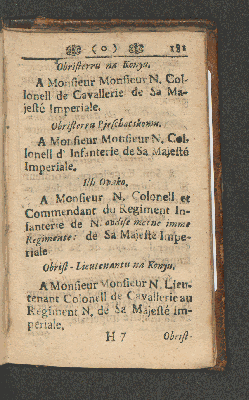 (0) 181
Obristerru na Konyu.
A Monsieur Monsieur N. Col-
lonell de Cavallerie de Sa Ma-
jesté Imperiale.
Obristerru Pjeschatskomu.
A Monsieur Monsieur N. Col-
lonell d' Infanterie de Sa Majesté
Imperiale.
Illi Ovako,
A Monsieur N. Colonell et
Commendant du Regiment In-
fanterie de N. ovdise metne imme
Regimente: de Sa Majeste Impe-
riale.
Obrist-Lieutenantu na Konyu.
A Monsieur Monsieur N. Lieu-
tenant Colonell de Cavallerie au
Regiment N. de Sa Majesté Im-
periale.
H 7 Obrist-